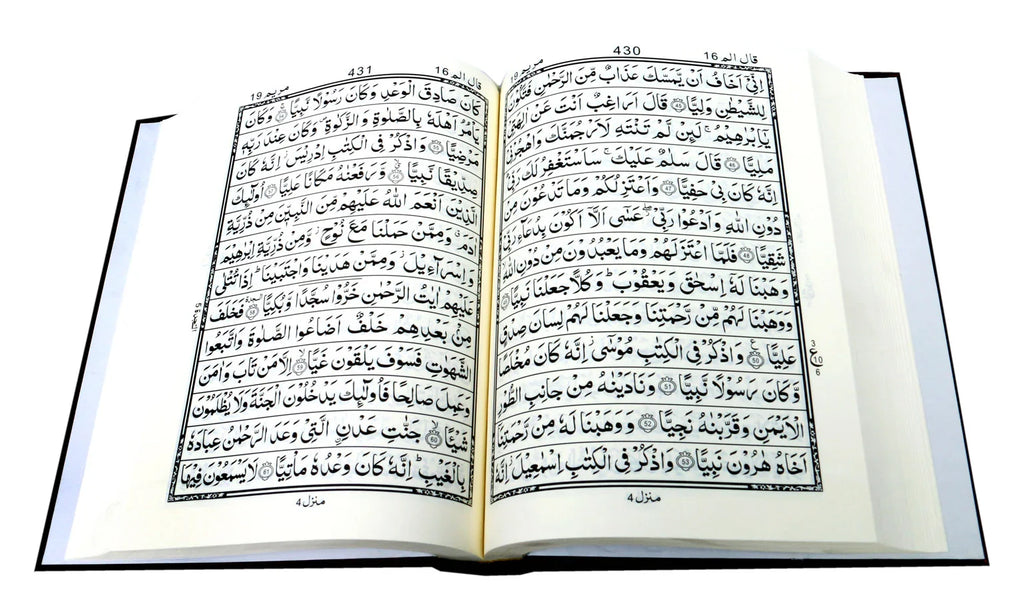 مريم 19
430
قال الم 16
اِنِّىْٓ اَخَافُ اَنْ يَّمَسَّكَ عَذَابٌ مِّنَ الرَّحْمٰنِ فَتَكُوْنَ
لِلشَّيْطٰنِ وَلِيًّا ﴿45﴾ قَالَ اَرَاغِبٌ اَنْتَ عَنْ اٰلِهَتِيْ
يٰۤاِبْرٰهِيْمُ ۚ لَئِنْ لَّمْ تَنْتَهِ لَاَرْجُمَنَّكَ وَاهْجُرْنِيْ
مَلِيًّا ﴿46﴾ قَالَ سَلٰمٌ عَلَيْكَ ۚ سَاَسْتَغْفِرُ لَكَ رَبِّيْ ؕ
اِنَّهٗ كَانَ بِيْ حَفِيًّا ﴿47﴾ وَاَعْتَزِلُكُمْ وَمَا تَدْعُوْنَ مِنْ
دُوْنِ اللّٰهِ وَاَدْعُوْا رَبِّيْ ۖ عَسٰۤى اَلَّاۤ اَكُوْنَ بِدُعَآءِ رَبِّيْ
شَقِيًّا ﴿48﴾ فَلَمَّا اعْتَزَلَهُمْ وَمَا يَعْبُدُوْنَ مِنْ دُوْنِ اللّٰهِ ۙ
وَهَبْنَا لَهٗۤ اِسْحٰقَ وَيَعْقُوْبَ ؕ وَكُلًّا جَعَلْنَا نَبِيًّا ﴿49﴾
وَوَهَبْنَا لَهُمْ مِّنْ رَّحْمَتِنَا وَجَعَلْنَا لَهُمْ لِسَانَ صِدْقٍ
عَلِيًّا ﴿50﴾ وَاذْكُرْ فِى الْكِتٰبِ مُوْسٰۤى ۫ اِنَّهٗ كَانَ مُخْلَصًا
وَّكَانَ رَسُوْلًا نَّبِيًّا ﴿51﴾ وَنَادَيْنٰهُ مِنْ جَانِبِ الطُّوْرِ
الْاَيْمَنِ وَقَرَّبْنٰهُ نَجِيًّا ﴿52﴾ وَوَهَبْنَا لَهٗ مِنْ رَّحْمَتِنَاۤ
اَخَاهُ هٰرُوْنَ نَبِيًّا ﴿53﴾ وَاذْكُرْ فِى الْكِتٰبِ اِسْمٰعِيْلَ ۫ اِنَّهٗ
3
ع
10
6
منزل 4
مريم 19
431
قال الم 16
كَانَ صَادِقَ الْوَعْدِ وَكَانَ رَسُوْلًا نَّبِيًّا ﴿54﴾ وَكَانَ
يَاْمُرُ اَهْلَهٗ بِالصَّلٰوةِ وَالزَّكٰوةِ ۪ وَكَانَ عِنْدَ رَبِّهٖ
مَرْضِيًّا ﴿55﴾ وَاذْكُرْ فِى الْكِتٰبِ اِدْرِيْسَ ۫ اِنَّهٗ كَانَ
صِدِّيْقًا نَّبِيًّا ﴿56﴾ وَّرَفَعْنٰهُ مَكَانًا عَلِيًّا ﴿57﴾ اُولٰٓئِكَ
الَّذِيْنَ اَنْعَمَ اللّٰهُ عَلَيْهِمْ مِّنَ النَّبِيّٖنَ مِنْ ذُرِّيَّةِ
اٰدَمَ ۗ وَمِمَّنْ حَمَلْنَا مَعَ نُوْحٍ ۫ وَّمِنْ ذُرِّيَّةِ اِبْرٰهِيْمَ
وَاِسْرَآءِيْلَ ۫ وَمِمَّنْ هَدَيْنَا وَاجْتَبَيْنَا ؕ اِذَا تُتْلٰى
عَلَيْهِمْ اٰيٰتُ الرَّحْمٰنِ خَرُّوْا سُجَّدًا وَّبُكِيًّا ﴿58﴾ فَخَلَفَ
مِنْۢ بَعْدِهِمْ خَلْفٌ اَضَاعُوا الصَّلٰوةَ وَاتَّبَعُوا
الشَّهَوٰتِ فَسَوْفَ يَلْقَوْنَ غَيًّا ﴿59﴾ اِلَّا مَنْ تَابَ وَاٰمَنَ
وَعَمِلَ صَالِحًا فَاُولٰٓئِكَ يَدْخُلُوْنَ الْجَنَّةَ وَلَا يُظْلَمُوْنَ
شَيْئًا ﴿60﴾ جَنّٰتِ عَدْنِ اِۨلَّتِيْ وَعَدَ الرَّحْمٰنُ عِبَادَهٗ
بِالْغَيْبِ ؕ اِنَّهٗ كَانَ وَعْدُهٗ مَاْتِيًّا ﴿61﴾ لَا يَسْمَعُوْنَ فِيْهَا
منزل 4